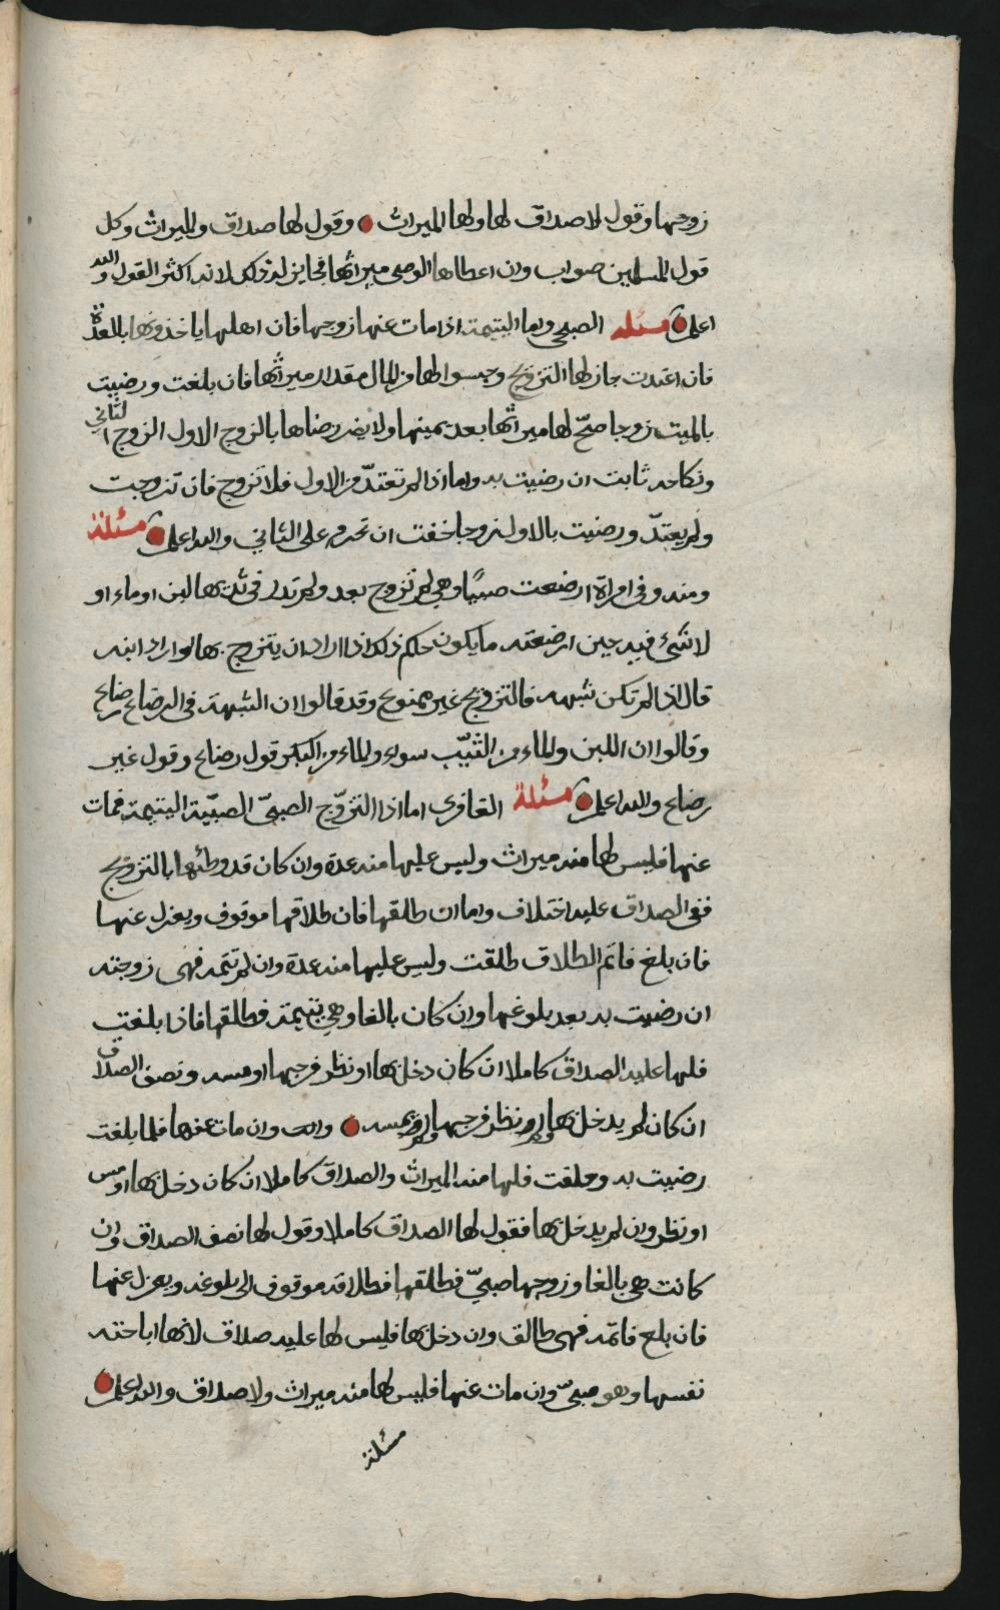 زوجها وقول لا صداق لها ولها الميراث وقول لها صداق والميراث وكل
قول المسلمين صواب وان اعطاها الوصي ميراثها فجايز له ذلك لانه اكثر القول والله
اعلم مسئله الصبحي واما اليتيمة اذا مات عنها زوجها فان اهلها ياخذونها بالعدة
فان اعتدت جاز لها التزويج وحبسوا لها من المال مقدار ميراثها فان بلغت ورضيت
بالميت زوجا صحّ لها ميراثها بعد يمينها ولا يضر رضاها بالزوج الاول الزوج الثاني
ونكاحه ثابت ان رضيت به واما اذا لم تعتدّ من الاول فلا تزوج فان تزوجت
ولم يعتدّ ورضيت بالاول زوجا خفت ان تحرم على الثاني والله اعلم مسئلة
ومنه وفي امراة ارضعت صبيًا وهي لم تزوج بعد ولم تدر في ثديها لبن او ماء او
لا شئ فيه حين ارضعته ما يكون حكم ذلك اذا اراد ان يتزوج بها او اراد ابنه
قال اذا لم تكن شبهه فالتزويج غير ممنوع وقد قالوا ان الشبهة في الرضاع رضاع
وقالوا ان اللبن والماء من الثيّب سواء والماء من البكر قول رضاع وقول غير
رضاع والله اعلم مسئلة الغافري اما اذا التزوّج الصبيّ الصبيّة اليتيمة فمات
عنها فليس لها منه ميراث وليس عليها منه عدة وان كان قد وطئها بالتزويج
ففي الصداق عليه اختلاف واما ان طلقها فان طلاقها موقوف ويعزل عنها
فان بلغ فاتم الطلاق طلقت وليس عليها منه عدة وان لم يتمه فهي زوجته
ان رضيت به بعد بلوغها وان كان بالغا وهي يتيمة فطلقها فاذا بلغت
فلها عليه الصداق كاملا ان كان دخل بها او نظر فرجها او مسه ونصف الصداق
ان كان لم يدخل بها ولم ينظر فرجها ولم يمسه وان مات عنها فلما بلغت
رضيت به وحلفت فلها منه الميراث والصداق كاملا ان كان دخل بها او مس
او نظر وان لم يدخل بها فقول لها الصداق كاملا وقول لها نصف الصداق وان
كانت هي بالغا وزوجها صبيّ فطلقها فطلاقه موقوف الى بلوغه ويعزل عنها
فان بلغ فاتمه فهي طالق وان دخل بها فليس لها عليه صداق لانها اباحته
نفسها وهو صبيّ وان مات عنها فليس لها منه ميراث ولا صداق والله اعلم
مسئلة